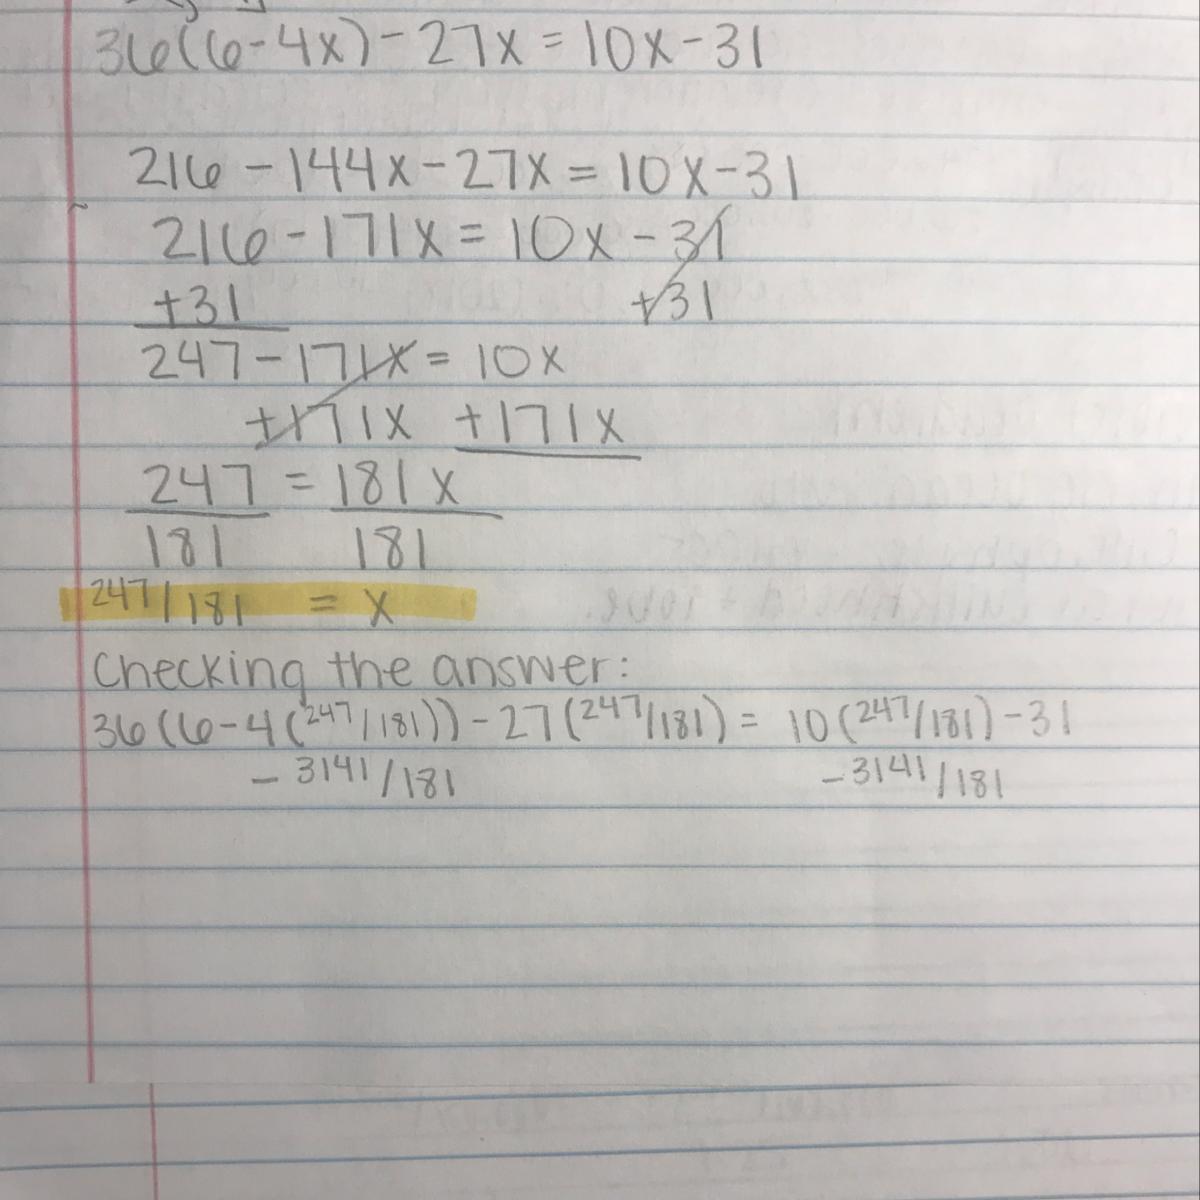 36(6-4x)-27x=10x-31
216-144x-27x=10x-31
216-171x=10x-31
+31 +31
247-171x=10x
+171x +171x
247=181x
181 181
247/181 = x
Checking the answer:
36(6-4(247/181))-27(247/181)= 10(247/181)-31
-3141/181 -3141/181